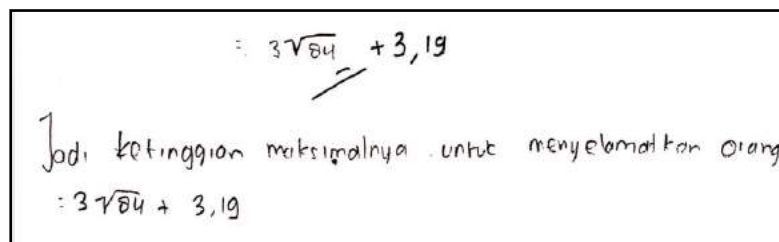 = 3√84 + 3,19
Jadi ketinggian maksimalnya untuk menyelamatkan orang
= 3√84 + 3,19